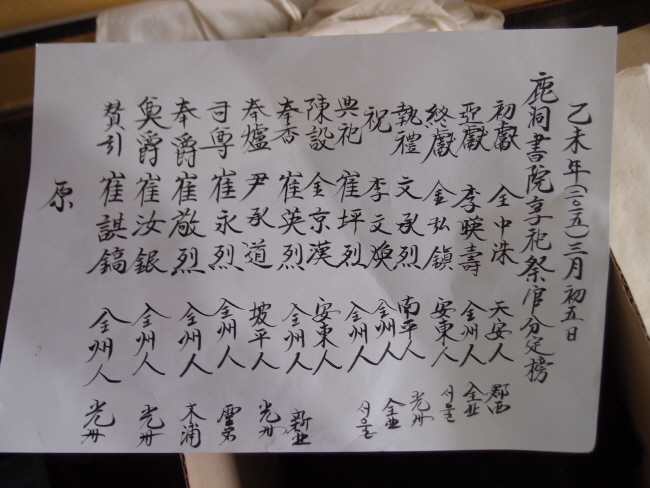 乙未年(二〇一五)三月初五日
鹿洞書院享祀祭官分定榜
初獻 全中洙 天安人 郡西
亞獻 李暎壽 全州人
終獻 金弘鎭 安東人 서울
執禮 文承烈 南平人 光州
祝 李文煥 全州人
典祀 崔坪烈 全州人 서울
陳設 金京漢 安東人
奉香 崔英烈 全州人
奉爐 尹承道 坡平人 光州
司尊 崔永烈 全州人
奉爵 崔敬烈 全州人 木浦
奠爵 崔汝銀 全州人 光州
賛引 崔諆鎬 全州人 光州
原